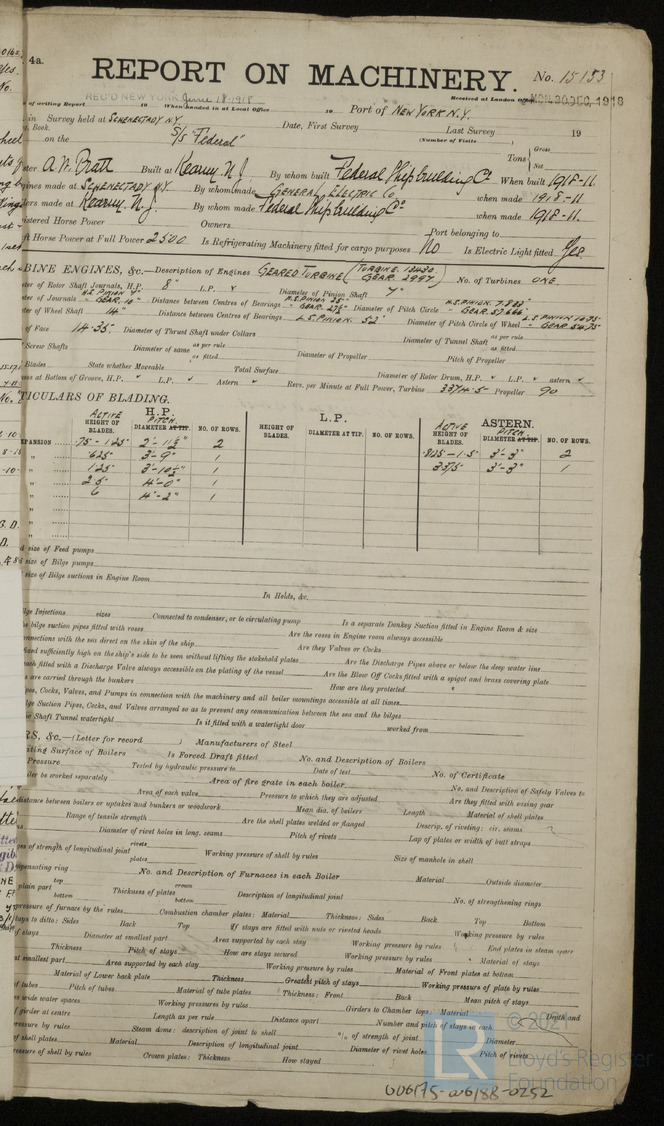 4a.
REPORT ON MACHINERY.
No. 15153
REC'D NEW YORK June 18-1918
of writing Report 19 When handed in at Local Office 19 Port of NEW YORK N.Y.
Received at London Office MON. 30 DEC. 1918
in Survey held at SCHENECTADY N.Y. Date, First Survey Last Survey 19
Book. (Number of Visits
on the S/S 'Federal'
Tons Gross Net
A. W. Pratt Built at Kearny. N.J. By whom built Federal Shipbuilding Co When built 1918-11.
made at SCHENECTADY N.Y. By whom made GENERAL ELECTRIC Co when made 1918-11.
made at Kearny. N.J. By whom made Federal Shipbuilding Co when made 1918-11.
Horse Power Owners Port belonging to
Horse Power at Full Power 2500 Is Refrigerating Machinery fitted for cargo purposes No Is Electric Light fitted Yes.
BINE ENGINES, &c.—Description of Engines GEARED TURBINE (TURBINE. GEAR. 2997) No. of Turbines ONE.
of Rotor Shaft Journals, H.P. 8" L.P. Diameter of Pinion Shaft 4"
of Journals Distance between Centres of Bearings Diameter of Pitch Circle
of Wheel Shaft 14" Distance between Centres of Bearings Diameter of Pitch Circle of Wheel
of Face 14.35" Diameter of Thrust Shaft under Collars Diameter of Tunnel Shaft as per rule as fitted
Screw Shafts Diameter of same as per rule as fitted Diameter of Propeller Pitch of Propeller
Blades State whether Moveable Total Surface Diameter of Rotor Drum, H.P. L.P. astern
at Bottom of Groove, H.P. L.P. Astern Revs. per Minute at Full Power, Turbine 3374.5 Propeller 90
TICULARS OF BLADING.
H.P. L.P. ASTERN.
ACTIVE HEIGHT OF BLADES. PITCH DIAMETER AT TIP. NO. OF ROWS. HEIGHT OF BLADES. DIAMETER AT TIP. NO. OF ROWS. ACTIVE HEIGHT OF BLADES. PITCH DIAMETER AT TIP. NO. OF ROWS.
XPANSION .75-1.25" 2'-11½" 2 3'-3" 2
" .625" 3'-9" 1 3'-3" 1
" 1.25" 3'-10½" 1
" 2.5" 4'-0" 1
" 6 4'-2" 1
size of Feed pumps
size of Bilge pumps
size of Bilge suctions in Engine Room
In Holds, &c.
Injections sizes Connected to condenser, or to circulating pump Is a separate Donkey Suction fitted in Engine Room & size
bilge suction pipes fitted with roses Are the roses in Engine room always accessible
connections with the sea direct on the skin of the ship Are they Valves or Cocks
sufficiently high on the ship's side to be seen without lifting the stokehold plates Are the Discharge Pipes above or below the deep water line
fitted with a Discharge Valve always accessible on the plating of the vessel Are the Blow Off Cocks fitted with a spigot and brass covering plate
are carried through the bunkers How are they protected
Cocks, Valves, and Pumps in connection with the machinery and all boiler mountings accessible at all times
Suction Pipes, Cocks, and Valves arranged so as to prevent any communication between the sea and the bilges
Shaft Tunnel watertight Is it fitted with a watertight door worked from
RS, &c.—(Letter for record ) Manufacturers of Steel
Surface of Boilers Is Forced Draft fitted No. and Description of Boilers
Pressure Tested by hydraulic pressure to Date of test No. of Certificate
be worked separately Area of fire grate in each boiler No. and Description of Safety Valves to
Area of each valve Pressure to which they are adjusted Are they fitted with easing gear
distance between boilers or uptakes and bunkers or woodwork Mean dia. of boilers Length Material of shell plates
Range of tensile strength Are the shell plates welded or flanged Descrip. of riveting: cir. seams
Diameter of rivet holes in long. seams Pitch of rivets Lap of plates or width of butt straps
of strength of longitudinal joint rivets plates Working pressure of shell by rules Size of manhole in shell
ring No. and Description of Furnaces in each Boiler Material Outside diameter
plain part top bottom Thickness of plates crown bottom Description of longitudinal joint No. of strengthening rings
pressure of furnace by the rules Combustion chamber plates: Material Thickness: Sides Back Top Bottom
to ditto: Sides Back Top If stays are fitted with nuts or riveted heads Working pressure by rules
of stays Diameter at smallest part Area supported by each stay Working pressure by rules End plates in steam space
Thickness Pitch of stays How are stays secured Working pressure by rules Material of stays
at smallest part Area supported by each stay Working pressure by rules Material of Front plates at bottom
Material of Lower back plate Thickness Greatest pitch of stays Working pressure of plate by rules
of tubes Pitch of tubes Material of tube plates Thickness: Front Back Mean pitch of stays
wide water spaces Working pressures by rules Girders to Chamber tops: Material Depth and
girder at centre Length as per rule Distance apart Number and pitch of stays in each
pressure by rules Steam dome: description of joint to shell % of strength of joint Diameter
of shell plates Material Description of longitudinal joint Diameter of rivet holes Pitch of rivets
pressure of shell by rules Crown plates: Thickness How stayed
© 2021
Lloyd's Register
Foundation
LR
006175-006188-0252